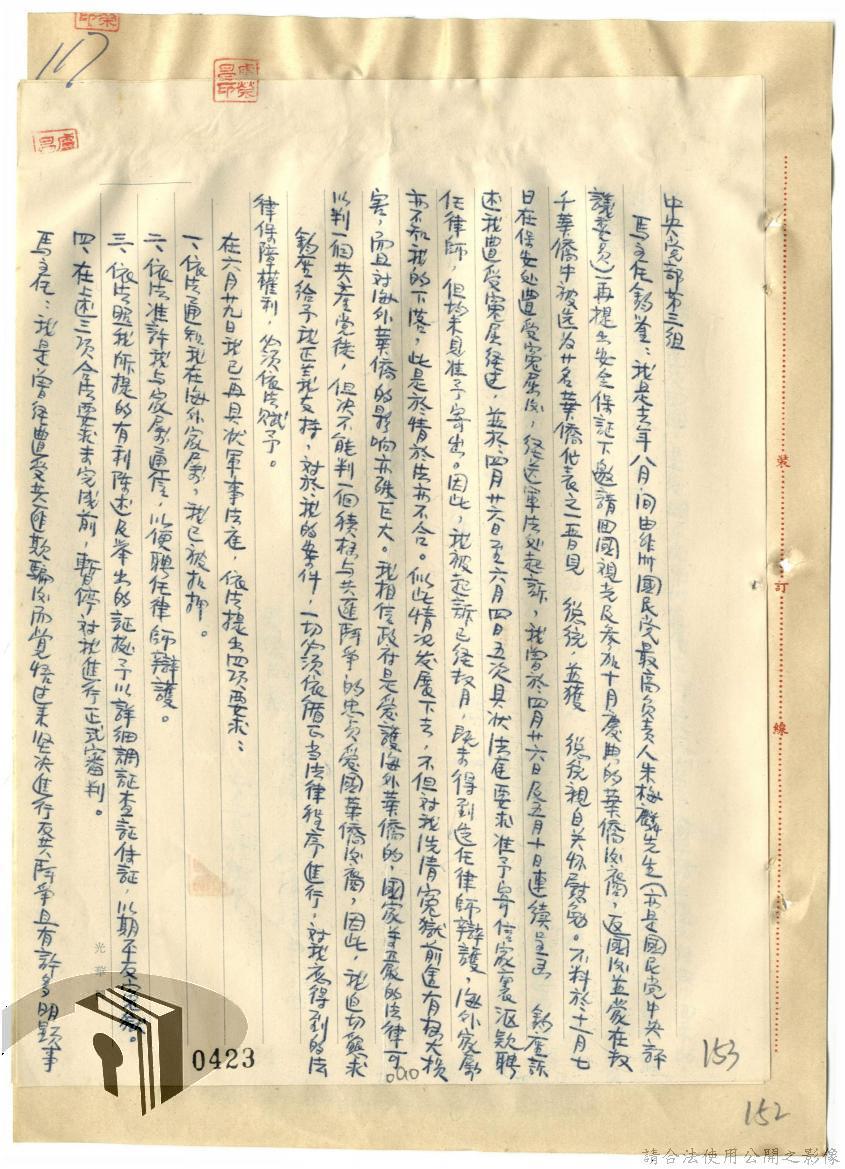 中央党部第三組
馬主任鈞鉴：我是去年八月间由非洲國民党最高负责人朱梅麟先生（亦是國民党中央評
議委员）再提出安全保証下邀請回國視察及参加十月慶典的華僑後裔，返國後並蒙在数
千華僑中被选为廿名華僑代表之一晋見　總統　並獲　總統親自关怀慰勉。不料於十一月七
日在保安处遭受冤屈後，经送軍法处起訴，我曾於四月廿六日及五月十日連續呈函　鈞座訴
述我遭受冤屈经过，並於四月廿六日至六月四日五次具状法庭要求准予寄信家裏汇款聘
任律师，但均未見准予寄出。因此，我被起訴已经数月，既未得到选任律师辯護，海外家屬
亦不知我的下落，此是於情於法亦不合。似此情况发展下去，不但对我洗清冤獄前途有莫大损
害，而且对海外華僑的影响亦殊巨大。我相信政府是爱護海外華僑的，國家尊严的法律可
以判一個共產党徒，但决不能判一個積极与共匪鬥争的忠贞爱國華僑後裔，因此，我迫切懇求
鈞座给予我正義支持，对於我的案件，一切必須依循正当法律程序進行，对我應得到的法
律保障權利，必須依法赋予。
在六月廿九日我已再具状軍事法庭，依法提出四项要求：
一、依法通知我在海外家屬，我已被扣押。
二、依法准許我与家屬通信，以便聘任律师辯護。
三、依法照我所提的有利陈述及举出的証据予以詳细調証查証传証，以期平反冤獄。
四、在上述三项合法要求未完成前，暫停对我進行正式審判。
馬主任：我是曾经遭受共匪欺騙後而覚悟过来坚决進行反共鬥争且有許多明顯事
117
153
152
0423
裝
訂
線
光華
請合法使用公開之影像